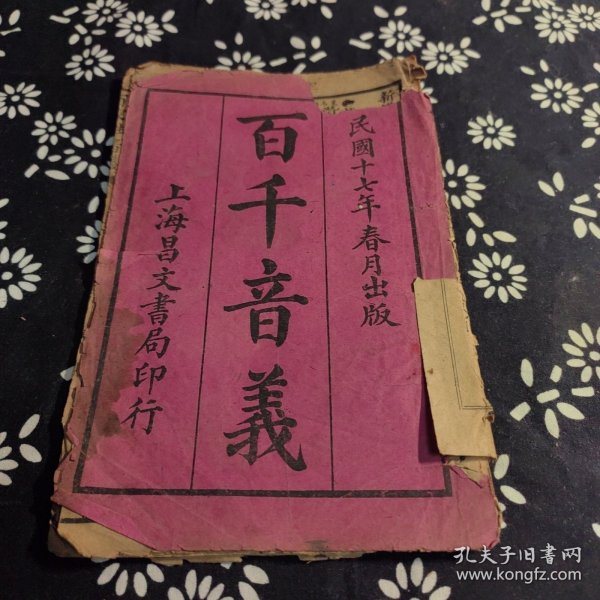 民國十七年春月出版
百千音義
上海昌文書局印行
新
孔夫子旧書网
www.kongfz.com